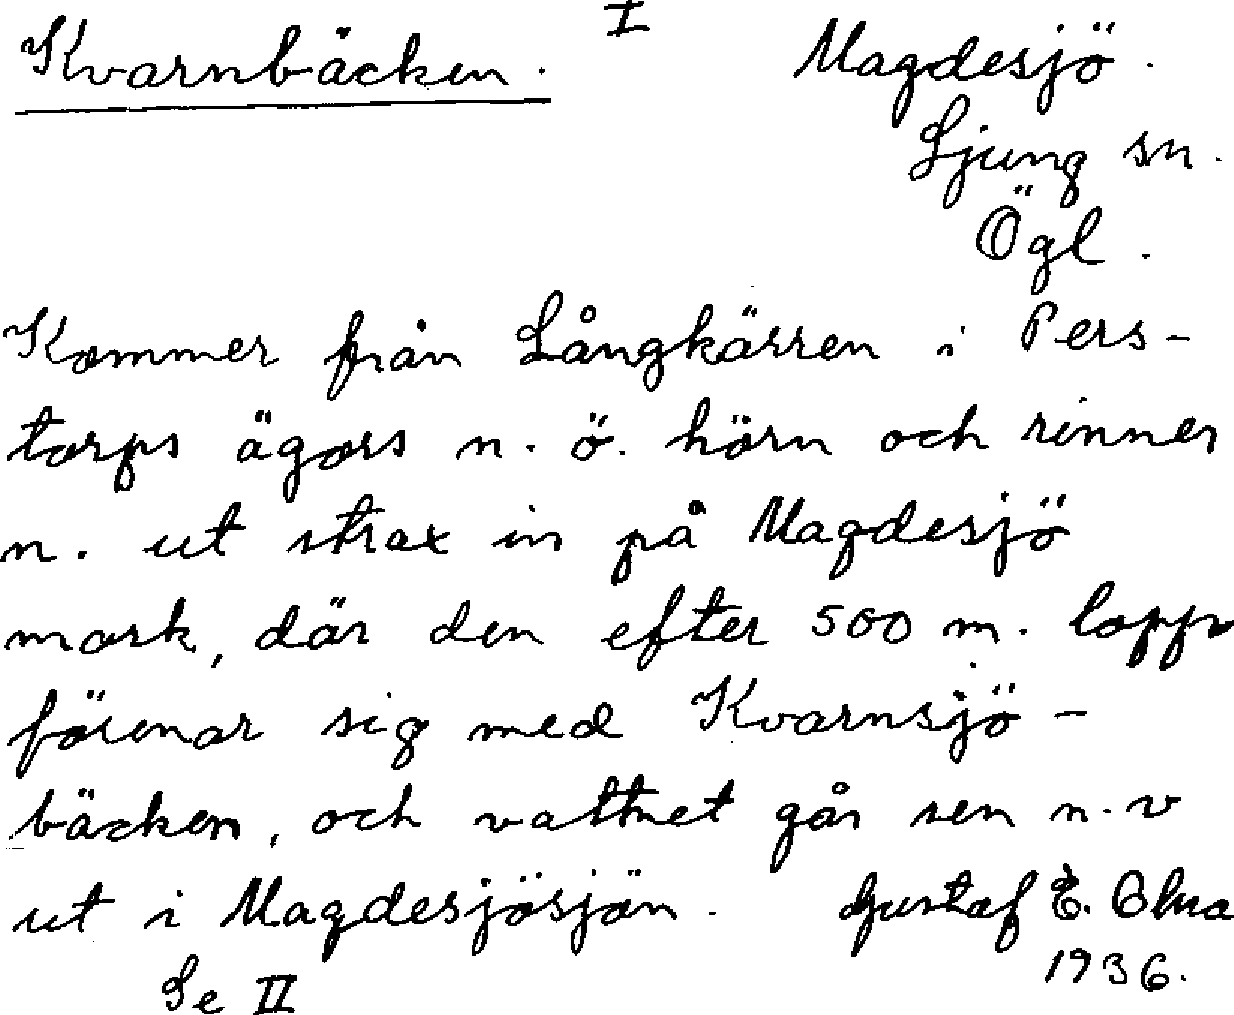 I
Kvarnbäcken. Magdesjö.
Ljung sn.
Ögl.
Kommer från Långkärren i Pers-
torps ägors n. ö. hörn och rinner
n. ut strax in på Magdesjö
mark, där den efter 500 m. lopp
förenar sig med Kvarnsjö-
bäcken, och vattnet går sen n. v
ut i Magdesjösjön. Gustaf E.
Se II 1936.